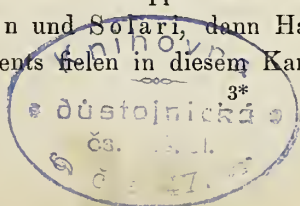 n und Solári, dann Ha
ents fielen in diesem Kar
3*
Knihovna
důstojnická
čs.
č 17.